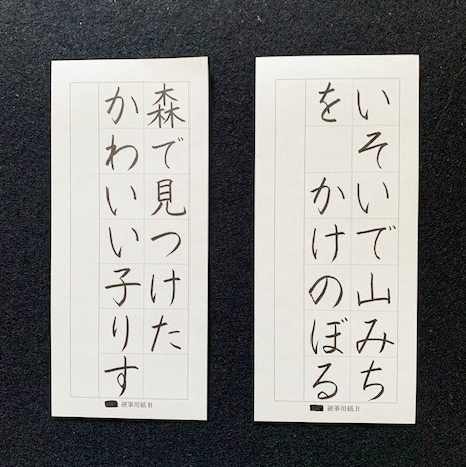 いそいで山みち
を　かけのぼる
硬筆用紙 B
森で見つけた
かわいい子りす
硬筆用紙 B